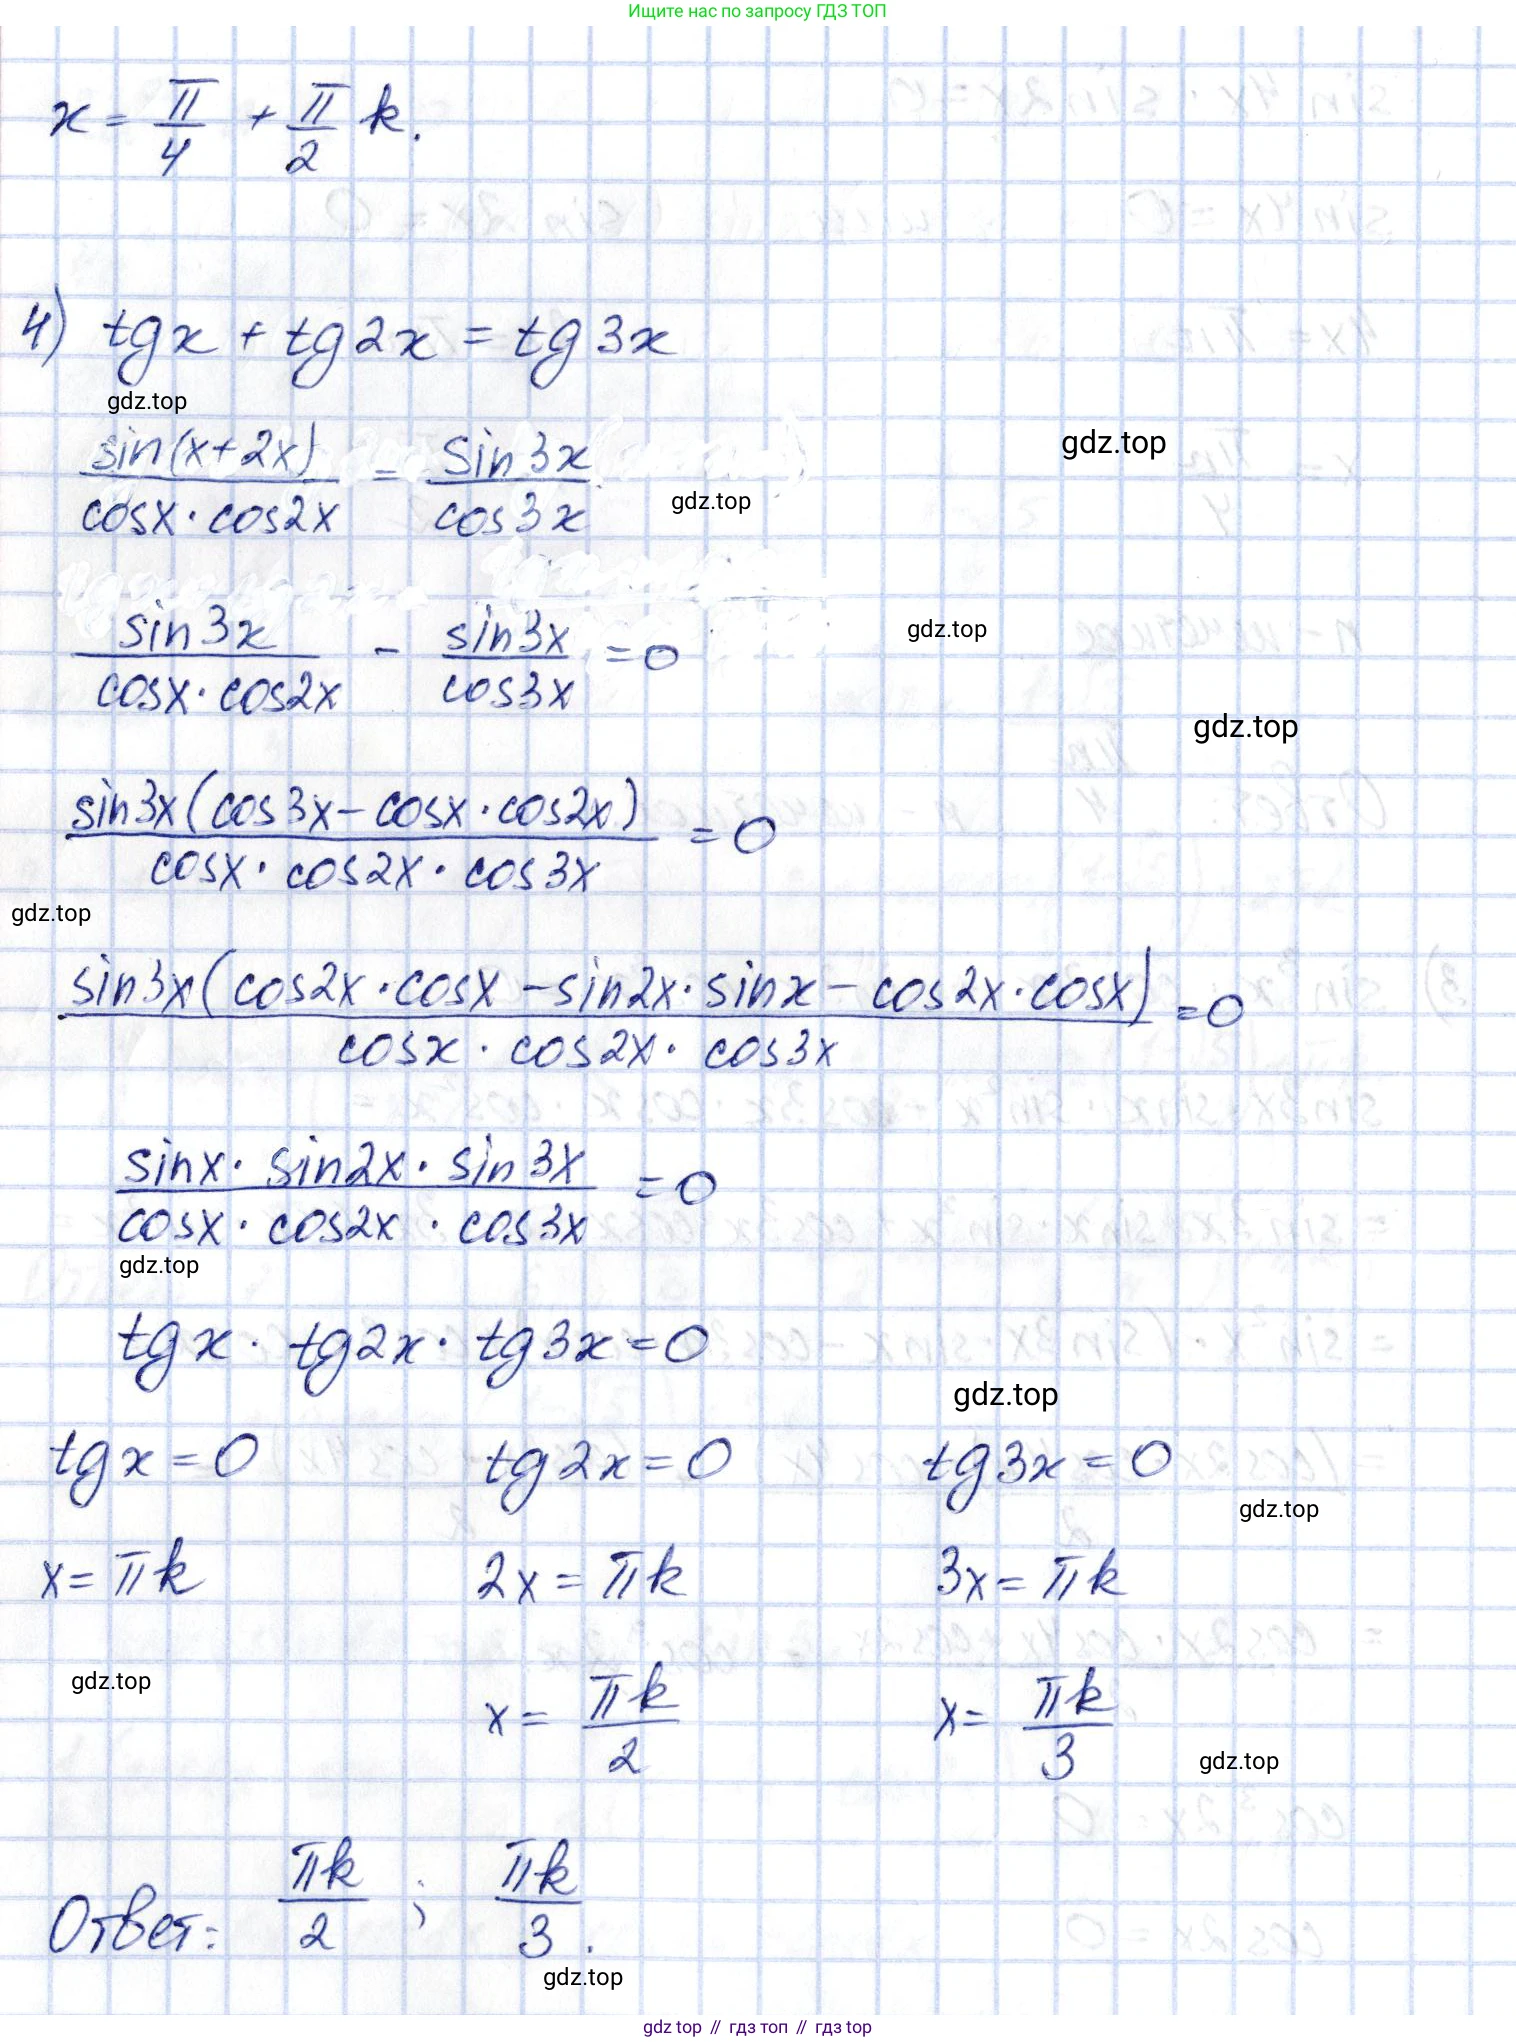 Ищите нас по запросу ГДЗ ТОП
x = π/4 + π/2 k.
4) tgx + tg2x = tg3x
gdz.top
sin(x+2x)/(cosx · cos2x) = sin3x/cos3x
gdz.top
gdz.top
sin3x/(cosx · cos2x) - sin3x/cos3x = 0
gdz.top
gdz.top
sin3x(cos3x - cosx · cos2x)/(cosx · cos2x · cos3x) = 0
gdz.top
sin3x(cos2x · cosx - sin2x · sinx - cos2x · cosx)/(cosx · cos2x · cos3x) = 0
sinx · sin2x · sin3x/(cosx · cos2x · cos3x) = 0
gdz.top
tgx · tg2x · tg3x = 0
gdz.top
tgx = 0 tg2x = 0 tg3x = 0
gdz.top
x = πk 2x = πk 3x = πk
gdz.top
x = πk/2 x = πk/3
gdz.top
Ответ: πk/2 ; πk/3.
gdz.top
gdz top // гдз топ // гдз top